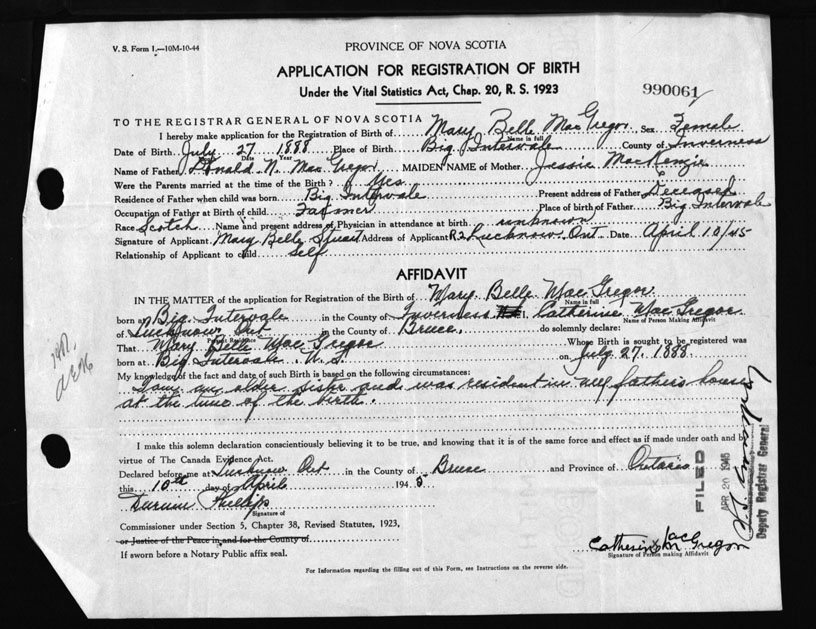 V. S. Form 1.—10M-10-44
PROVINCE OF NOVA SCOTIA
APPLICATION FOR REGISTRATION OF BIRTH
Under the Vital Statistics Act, Chap. 20, R. S. 1923
990061
TO THE REGISTRAR GENERAL OF NOVA SCOTIA
I hereby make application for the Registration of Birth of Mary Belle MacGregor Sex Female
Name in full
Date of Birth July 27 1888 Place of Birth Big Intervale County of Inverness
Date Year
Name of Father Donald N. MacGregor MAIDEN NAME of Mother Jessie MacKenzie
Were the Parents married at the time of the Birth? Yes Present address of Father Deceased
Residence of Father when child was born Big Intervale Place of birth of Father Big Intervale
Occupation of Father at Birth of child Farmer
Race Scotch Name and present address of Physician in attendance at birth unknown
Signature of Applicant Mary Belle Stuart Address of Applicant R2 Lucknow, Ont Date April 10/45
Relationship of Applicant to child self
AFFIDAVIT
IN THE MATTER of the application for Registration of the Birth of Mary Belle MacGregor
Name in full
born at Big Intervale in the County of Inverness I, Catherine MacGregor
Name of Person Making Affidavit
of Lucknow Ont in the County of Bruce do solemnly declare:
Present Residence
That Mary Belle MacGregor Whose Birth is sought to be registered was
born at Big Intervale N.S. on July 27, 1888
My knowledge of the fact and date of such Birth is based on the following circumstances:
I am an older sister and was resident in my fathers house
at the time of the birth.
I make this solemn declaration conscientiously believing it to be true, and knowing that it is of the same force and effect as if made under oath and by
virtue of The Canada Evidence Act.
Declared before me at Lucknow Ont in the County of Bruce and Province of Ontario
this 10th day of April 1945
Phillips
Signature of
Commissioner under Section 5, Chapter 38, Revised Statutes, 1923,
or Justice of the Peace in and for the County of
If sworn before a Notary Public affix seal.
Catherine MacGregor
Signature of Person making Affidavit
For Information regarding the filling out of this Form, see Instructions on the reverse side.
FILED
APR 20 1945
Deputy Registrar General